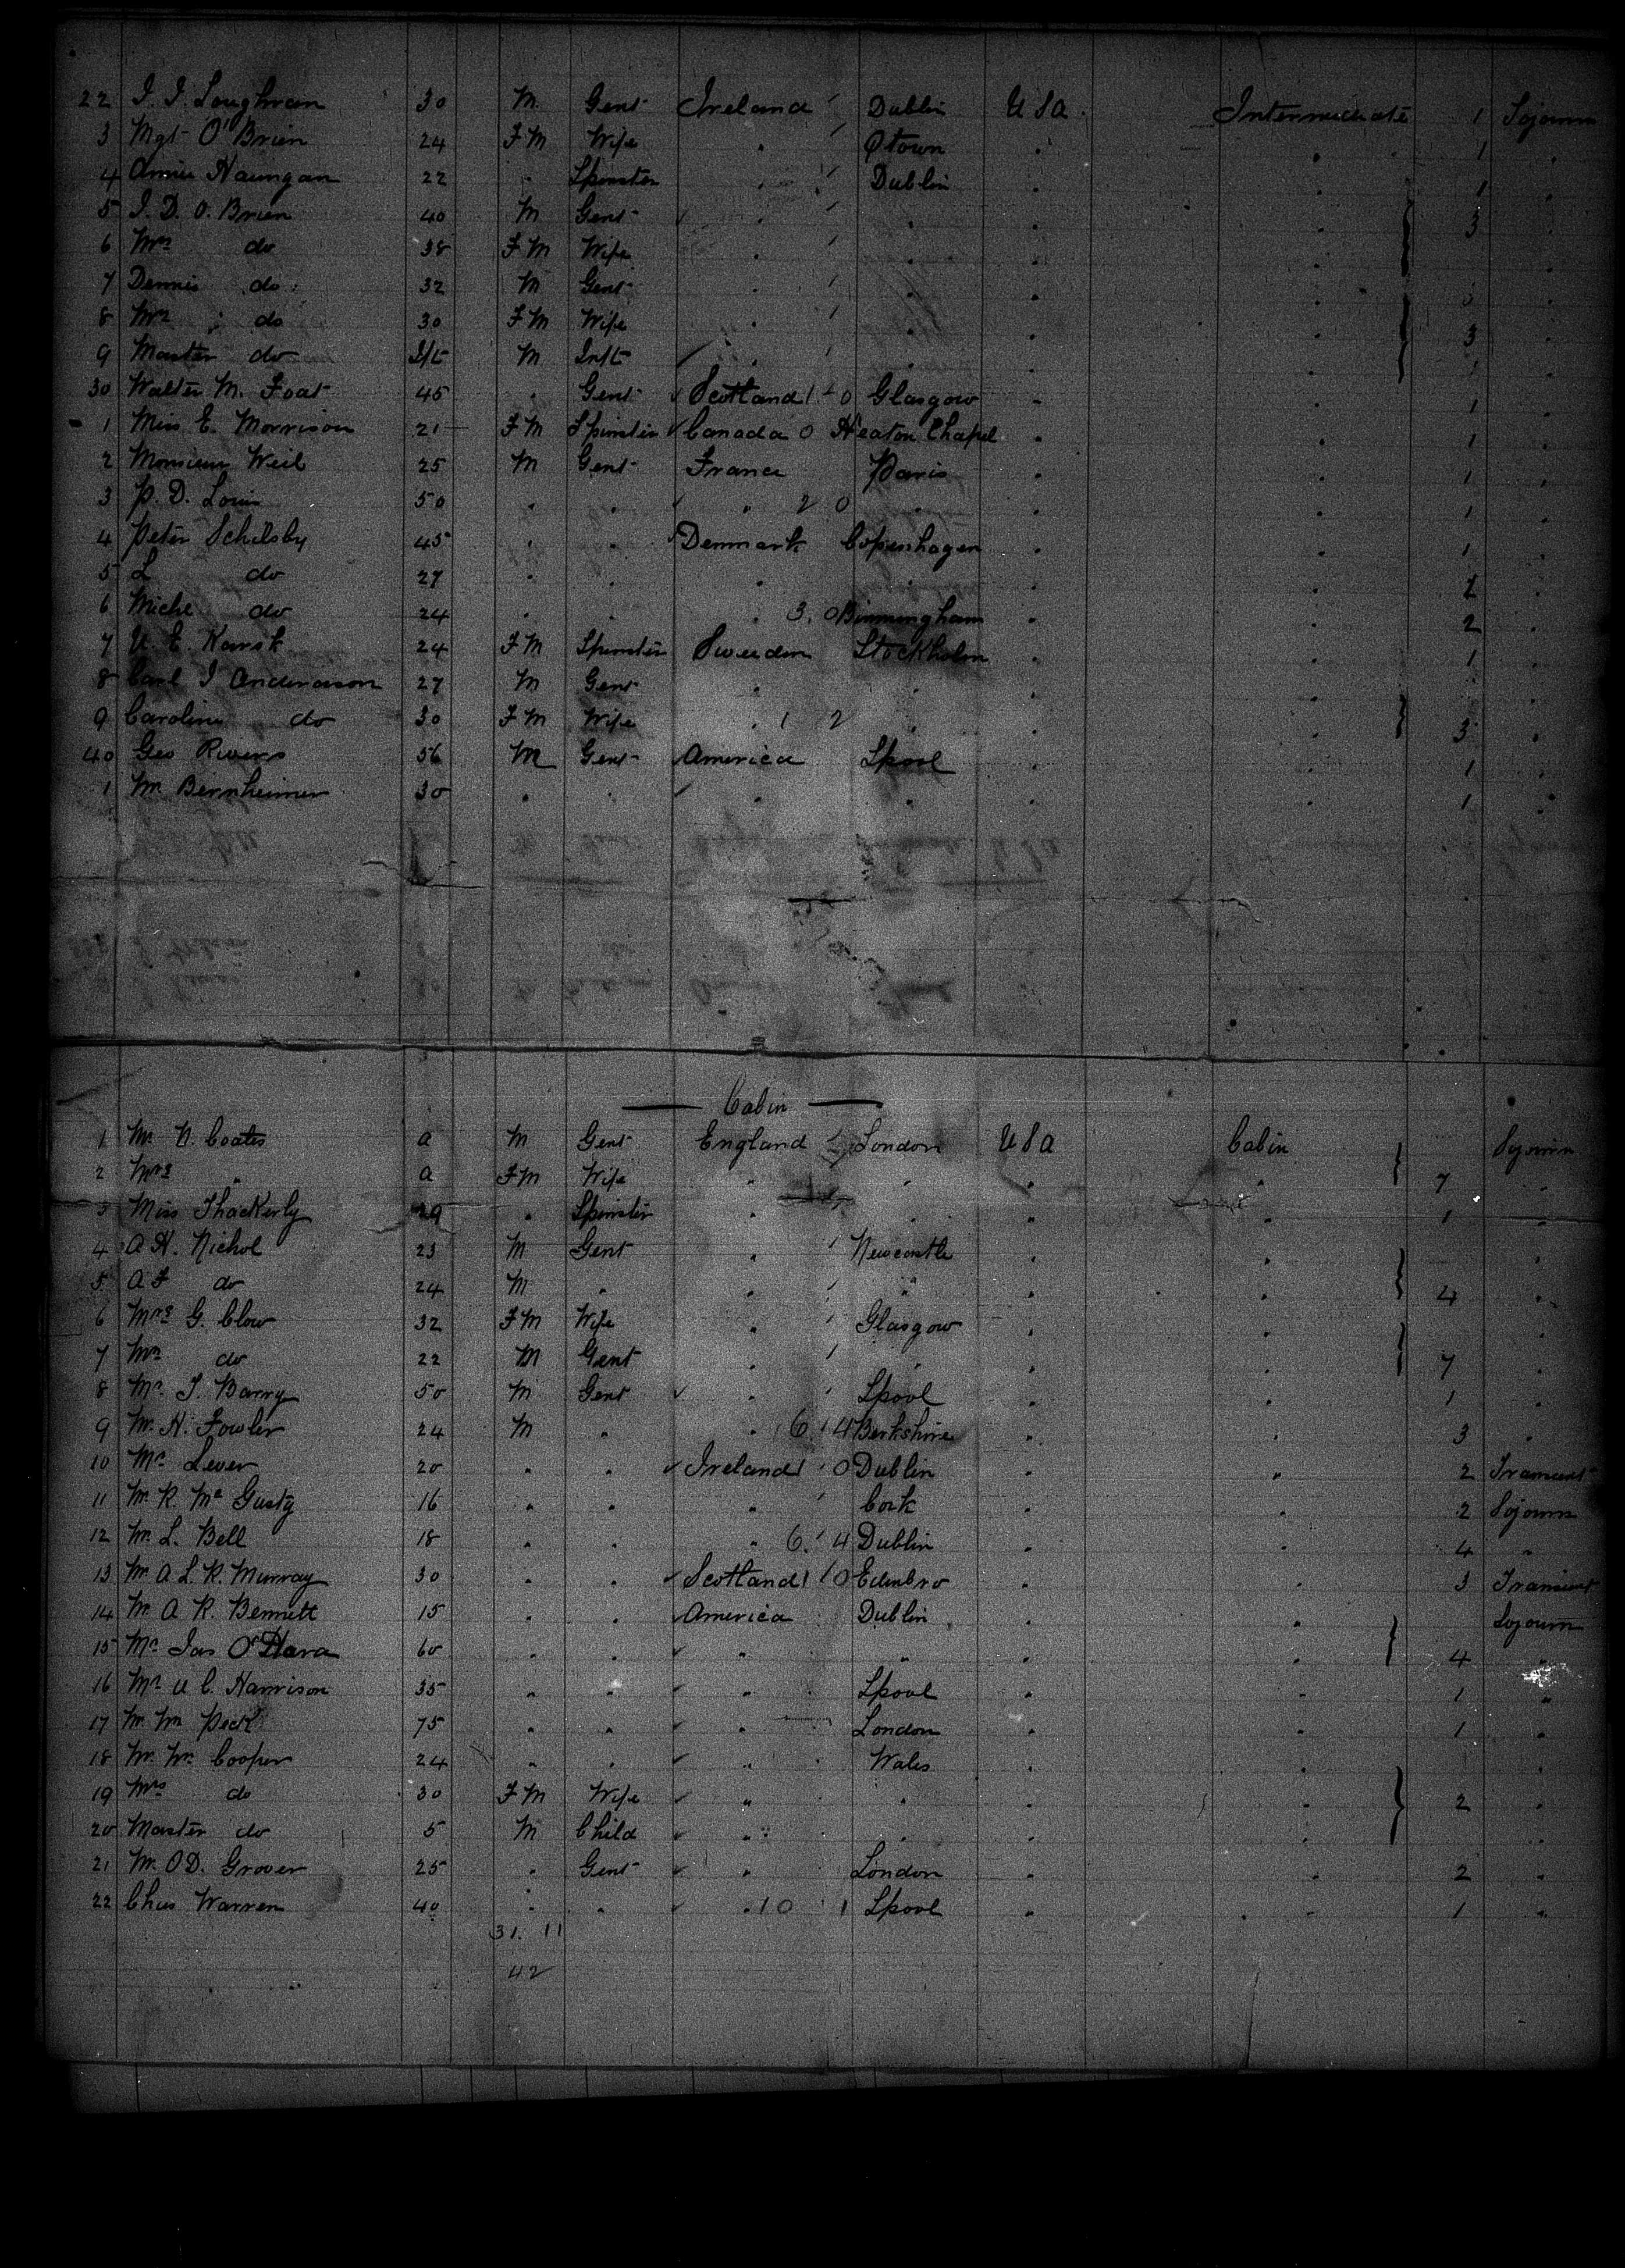 22 J. J. Loughran 30 M. Gent Ireland Dublin U S A. Intermediate 1 Sojourn
3 Mgt O'Brien 24 F M Wife " Qtown " " 1 "
4 Annie 22 " Spinster " Dublin " " 1 "
5 J. D. O. Brien 40 M Gent " " " " 3 "
6 Mrs do 38 F M Wife " " " "
7 Dennis do 32 M Gent " " " " "
8 Mrs do 30 F M Wife " " " " 3 "
9 Master do Inft M Inft " " " " "
30 Walter M. Foat 45 " Gent Scotland 1 0 Glasgow " " 1 "
1 Miss E. Morrison 21 F M Spinster Canada 0 Heaton Chapel " " 1 "
2 Monsieur Weil 25 M Gent France Paris " " 1 "
3 P. D. Louis 50 " " " 2 0 " " " 1 "
4 Peter Schilsby 45 " " Denmark Copenhagen " " 1 "
5 L do 27 " " " " " " 2 "
6 Michl do 24 " " " 3. 0 Birmingham " " 2 "
7 U. E. Karsk 24 F M Spinster Sweeden Stockholm " " 1 "
8 Carl J Anderason 27 M Gent " " " "
9 Caroline do 30 F M Wife " 1 2 " " " 3 "
40 Geo Rivers 56 M Gent America Lpool " " 1 "
1 M. Bernheimer 30 " " " " " " 1 "
Cabin
1 Mr N. Coates a M Gent England London U S A Cabin Sojourn
2 Mrs " a F M Wife " " " " 7 "
3 Miss Thackerly 29 " Spinster " " " " 1 "
4 A H. Nichol 23 M Gent " Newcastle " " "
5 A F do 24 M " " " " " 4 "
6 Mrs G. Clow 32 F M Wife " Glasgow " " "
7 Mr do 22 M Gent " " " " 7 "
8 Mr. J. Barry 50 M Gent " Lpool " " 1 "
9 Mr. H. Fowler 24 M " " 6. 4 Berkshire " " 3 "
10 Mr. Lever 20 " " Ireland 1 0 Dublin " " 2 Transient
11 Mr. R. Mc Gusty 16 " " " Cork " " 2 Sojourn
12 Mr. L. Bell 18 " " " 6. 4 Dublin " " 4 "
13 Mr A L. R. Murray 30 " " Scotland 1 0 Edinbro " " 3 Transient
14 Mr A R. Bennett 15 " " America Dublin " " Sojourn
15 Mr Jas O'Hara 60 " " " " " " 4 "
16 Mr U C. Harrison 35 " " " Lpool " " 1 "
17 Mr Wm Peck 75 " " " London " " 1 "
18 Mr. Wm. Cooper 24 " " " Wales " " "
19 Mrs do 30 F M Wife " " " " 2 "
20 Master do 5 M Child " " " " "
21 Mr. O D. Grover 25 " Gent " London " " 2 "
22 Chas Warren 40 " " " 10 1 Lpool " " 1 "
31. 11
42